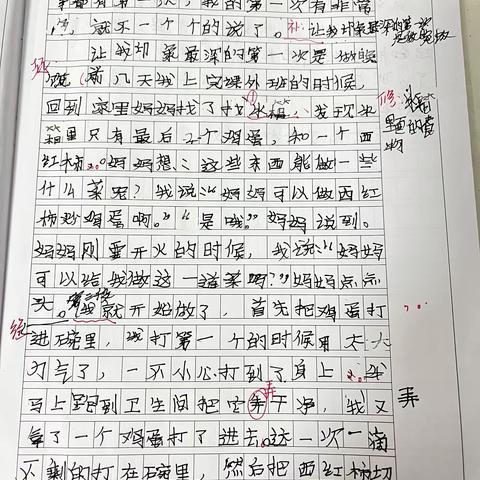 我的第一次有非常
就不一个个的说了。补：让我印象最深的第一次
让我印象最深的第一次是做晚
饭，前几天我上完课外班的时候，
回到家里妈妈找了找冰箱，发现冰 修：冰箱
箱里只有最后2个鸡蛋，和一个西 里面的食
红柿。妈妈想：这些东西能做一些 物
什么菜呢？我说：“妈妈可以做西红
柿炒鸡蛋啊。”“是哦。”妈妈说到。
妈妈刚要开火的时候，我说：“妈妈
可以给我做这一道菜吗？”妈妈点点
头。我就开始做了，首先把鸡蛋打
进碗里，我打第一个的时候用太大
力气了，一不小心打到了身上，我
马上跑到卫生间把它弄干净，我又 弄
拿了一个鸡蛋打了进去，这一次一滴
不剩的打在碗里，然后把西红柿切